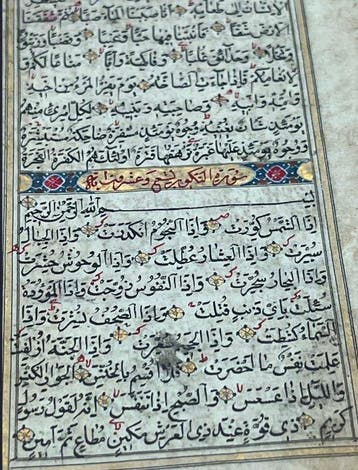 الارض شقا فانبتنا فيها حبا وعنبا وقضبا وزيتونا
ونخلا وحدائق غلبا وفاكهة وابا متاعا لكم و
لانعامكم فاذا جاءت الصاخة يوم يفر المرء من اخيه
وامه وابيه وصاحبته وبنيه لكل امرئ منهم
يومئذ شان يغنيه وجوه يومئذ مسفرة ضاحكة مستبشرة
ووجوه يومئذ عليها غبرة ترهقها قترة اولئك هم الكفرة الفجرة
سورة التكوير تسع وعشرون اية
بسم الله الرحمن الرحيم
اذا الشمس كورت واذا النجوم انكدرت واذا الجبال
سيرت واذا العشار عطلت واذا الوحوش حشرت
واذا البحار سجرت واذا النفوس زوجت واذا الموؤدة
سئلت باي ذنب قتلت واذا الصحف نشرت واذا
السماء كشطت واذا الجحيم سعرت واذا الجنة ازلفت
علمت نفس ما احضرت فلا اقسم بالخنس الجوار الكنس
والليل اذا عسعس والصبح اذا تنفس انه لقول رسول
كريم ذي قوة عند ذي العرش مكين مطاع ثم امين